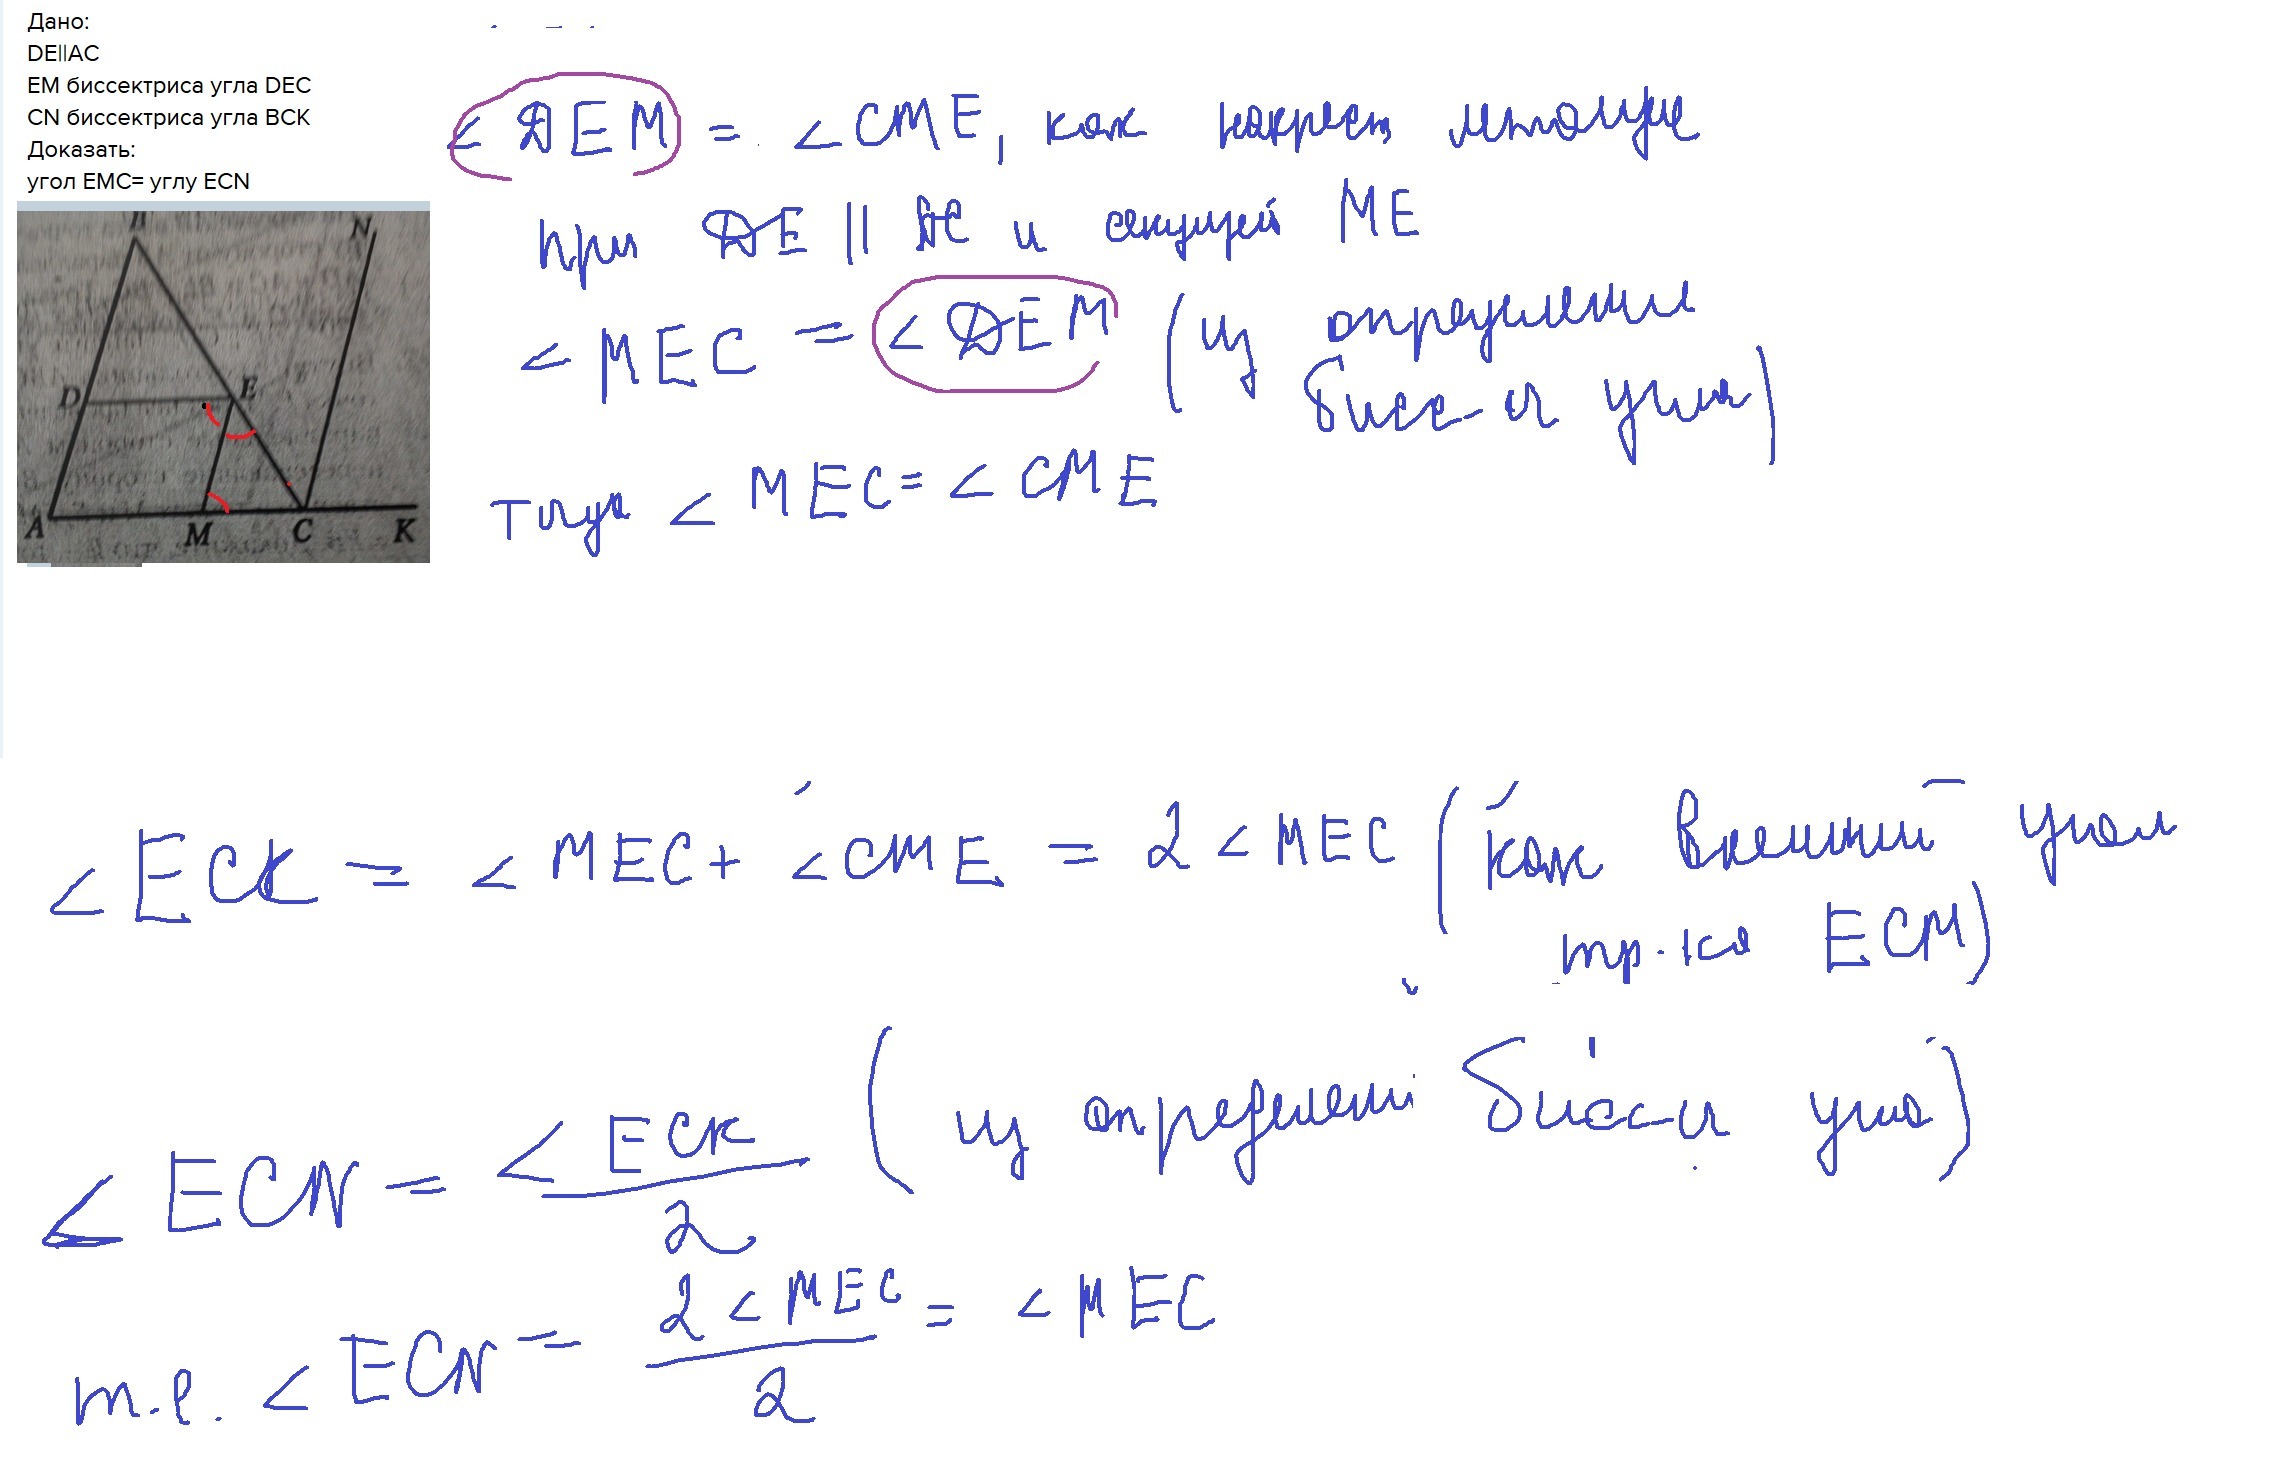 Дано:
DE||AC
EM биссектриса угла DEC
CN биссектриса угла BCK
Доказать:
угол EMC= углу ECN
B
N
D
E
A
M
C
K
∠ DEM = ∠ CME, как накрест лежащие
при DE || AC и секущей ME
∠ MEC = ∠ DEM (из определения
бисс-и угла)
тогда ∠ MEC = ∠ CME
∠ ECK = ∠ MEC + ∠ CME = 2 ∠ MEC (как внешний угол
тр-ка ECM)
∠ ECN = ∠ ECK / 2 (из определени бисс-и угла)
т.е. ∠ ECN = 2 ∠ MEC / 2 = ∠ MEC